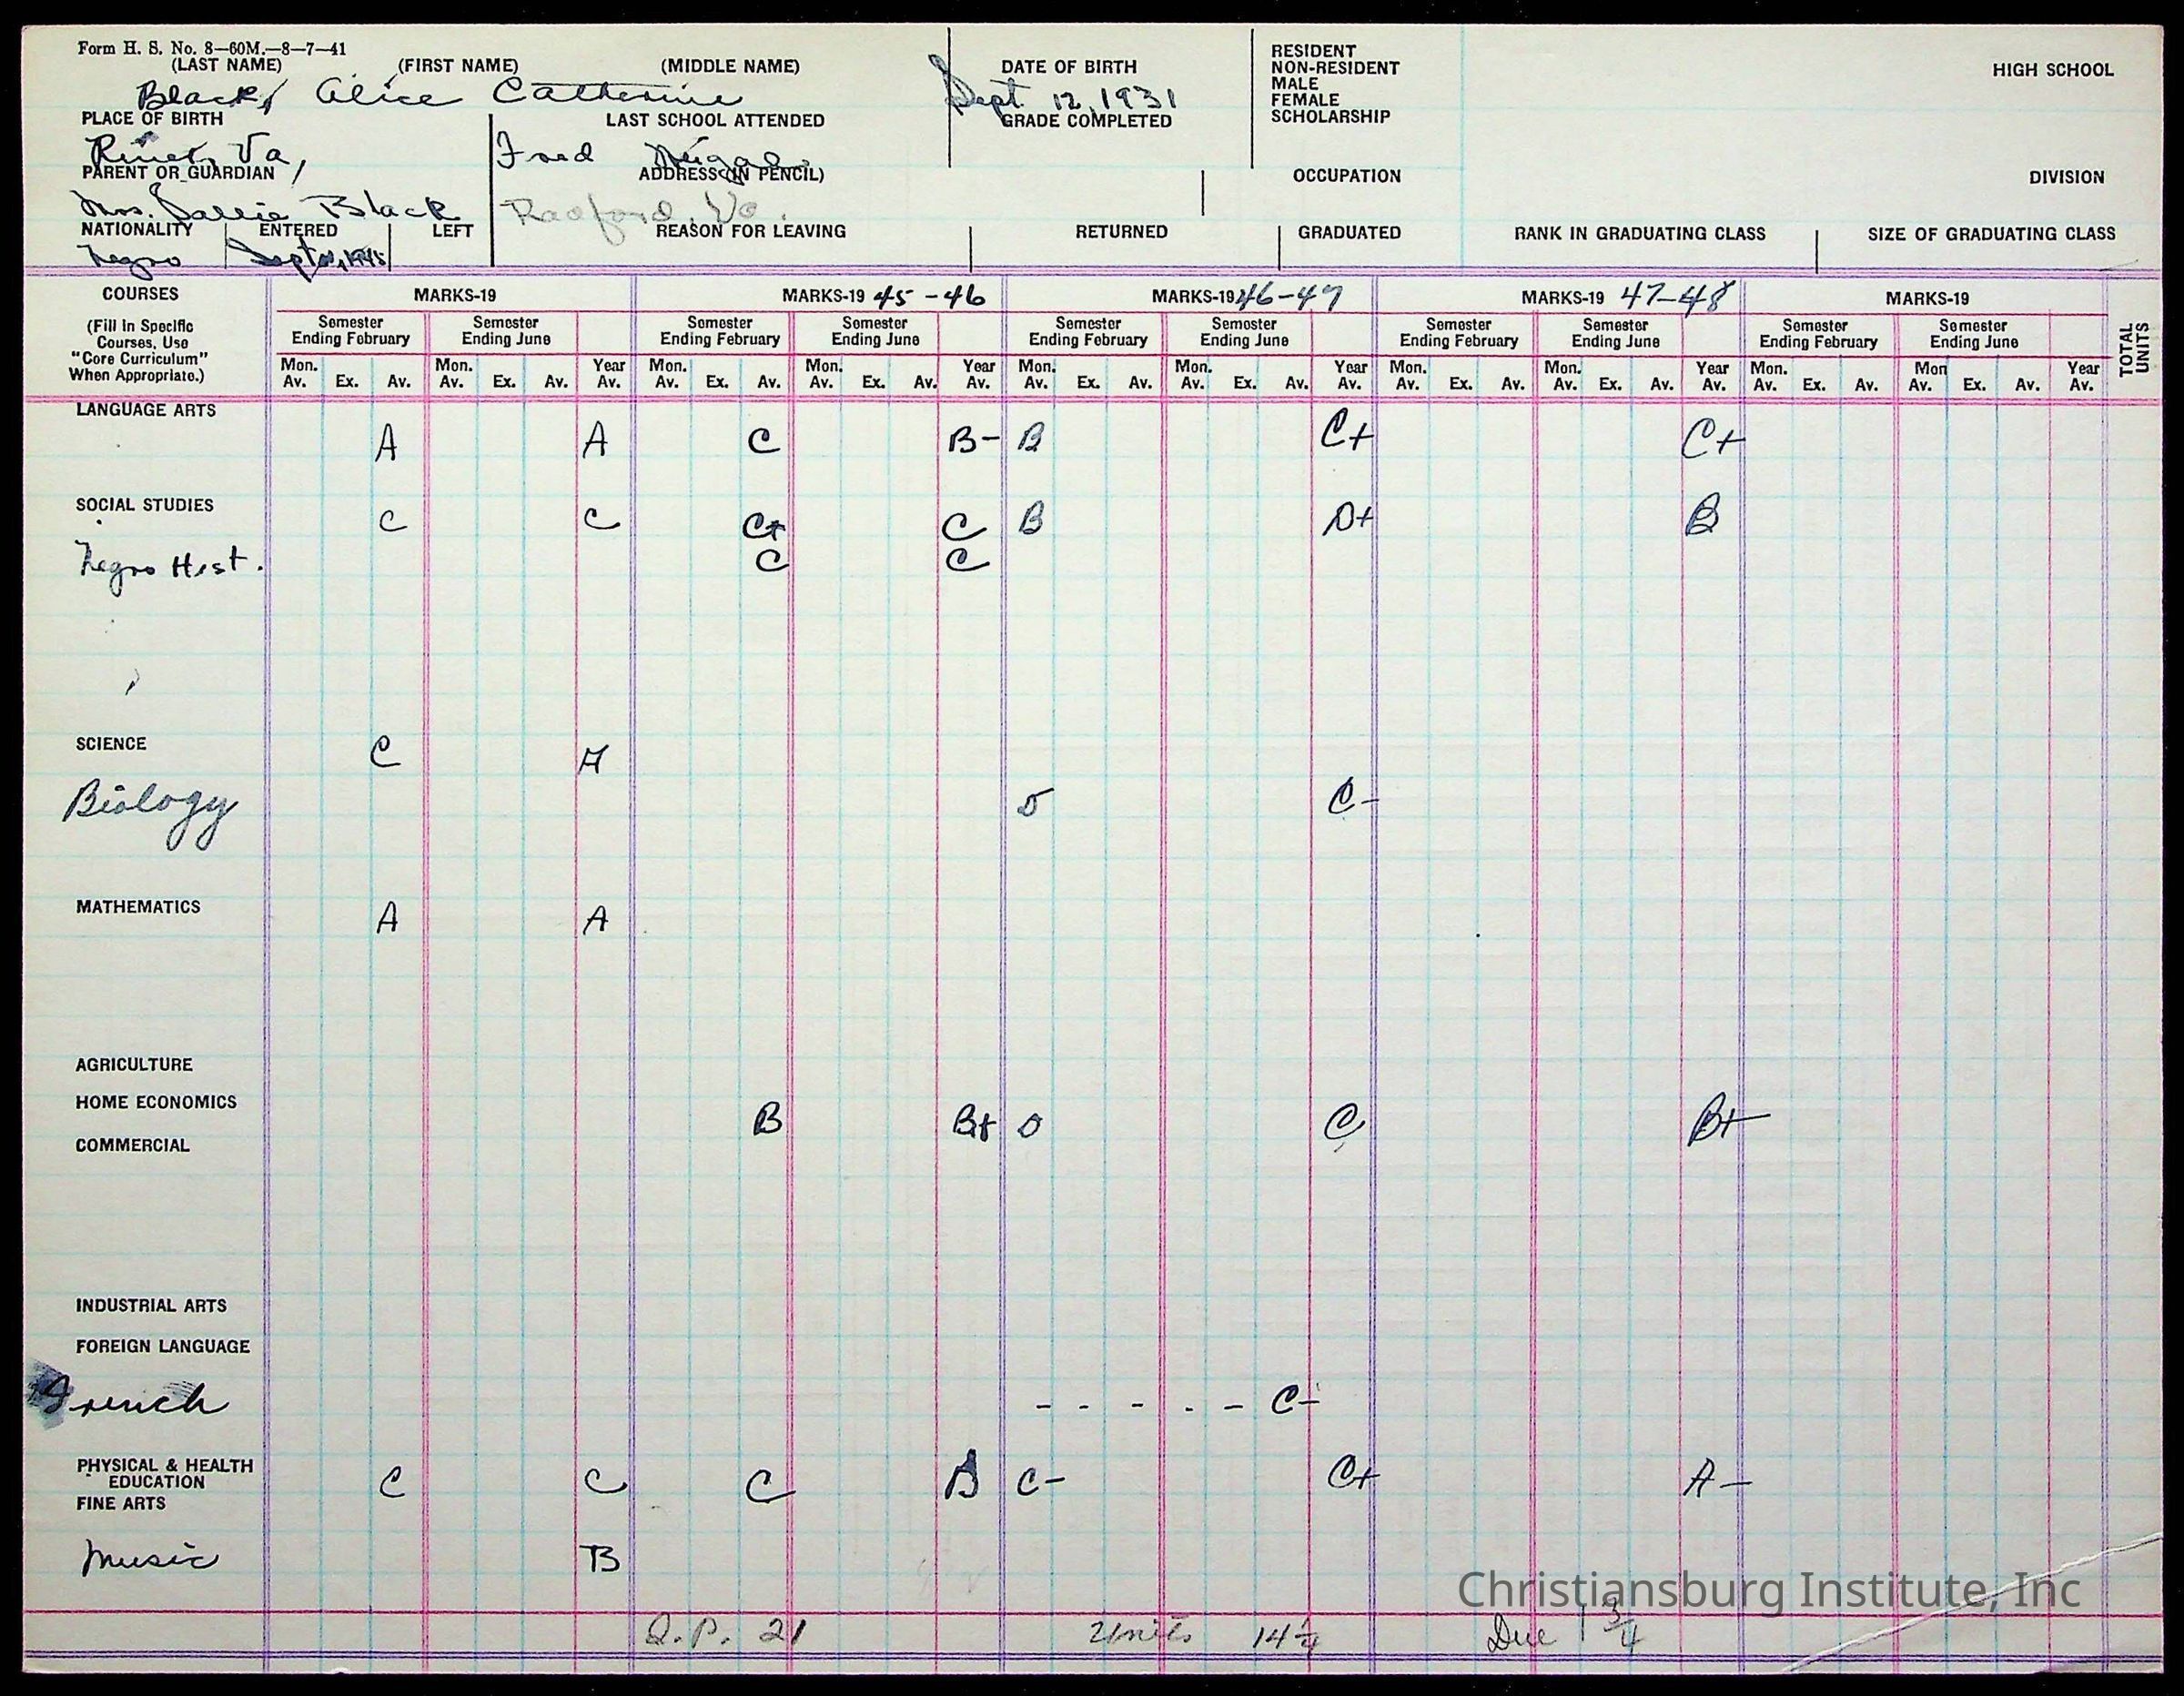 Form H. S. No. 8—60M.—8—7—41
(LAST NAME) (FIRST NAME) (MIDDLE NAME) DATE OF BIRTH RESIDENT
NON-RESIDENT HIGH SCHOOL
MALE
Black, Alice Catherine Sept. 12, 1931 FEMALE
PLACE OF BIRTH LAST SCHOOL ATTENDED GRADE COMPLETED SCHOLARSHIP
Va, Fred
PARENT OR GUARDIAN ADDRESS (IN PENCIL) OCCUPATION DIVISION
Mrs. Sallie Black Radford, Va.
NATIONALITY ENTERED LEFT REASON FOR LEAVING RETURNED GRADUATED RANK IN GRADUATING CLASS SIZE OF GRADUATING CLASS
Negro Sept
COURSES MARKS-19 MARKS-19 45-46 MARKS-19 46-47 MARKS-19 47-48 MARKS-19
(Fill in Specific Semester Semester Semester Semester Semester Semester Semester Semester Semester Semester TOTAL UNITS
Courses, Use Ending February Ending June Ending February Ending June Ending February Ending June Ending February Ending June Ending February Ending June
"Core Curriculum" Mon. Mon. Year Mon. Mon. Year Mon. Mon. Year Mon. Mon. Year Mon. Mon Year
When Appropriate.) Av. Ex. Av. Av. Ex. Av. Av. Av. Ex. Av. Av. Ex. Av. Av. Av. Ex. Av. Av. Ex. Av. Av. Av. Ex. Av. Av. Ex. Av. Av. Av. Ex. Av. Av. Ex. Av. Av.
LANGUAGE ARTS
A A C B- B C+ C+
SOCIAL STUDIES
C C C+ C B D+ B
Negro Hist. C C
SCIENCE
C A
Biology C-
MATHEMATICS
A A
AGRICULTURE
HOME ECONOMICS
B B+ C B+
COMMERCIAL
INDUSTRIAL ARTS
FOREIGN LANGUAGE
French - - - - - C-
PHYSICAL & HEALTH
EDUCATION C C C B C- C+ A-
FINE ARTS
Music B
Christiansburg Institute, Inc
Q.P. 21 Units 14 1/4 Due 1 3/4